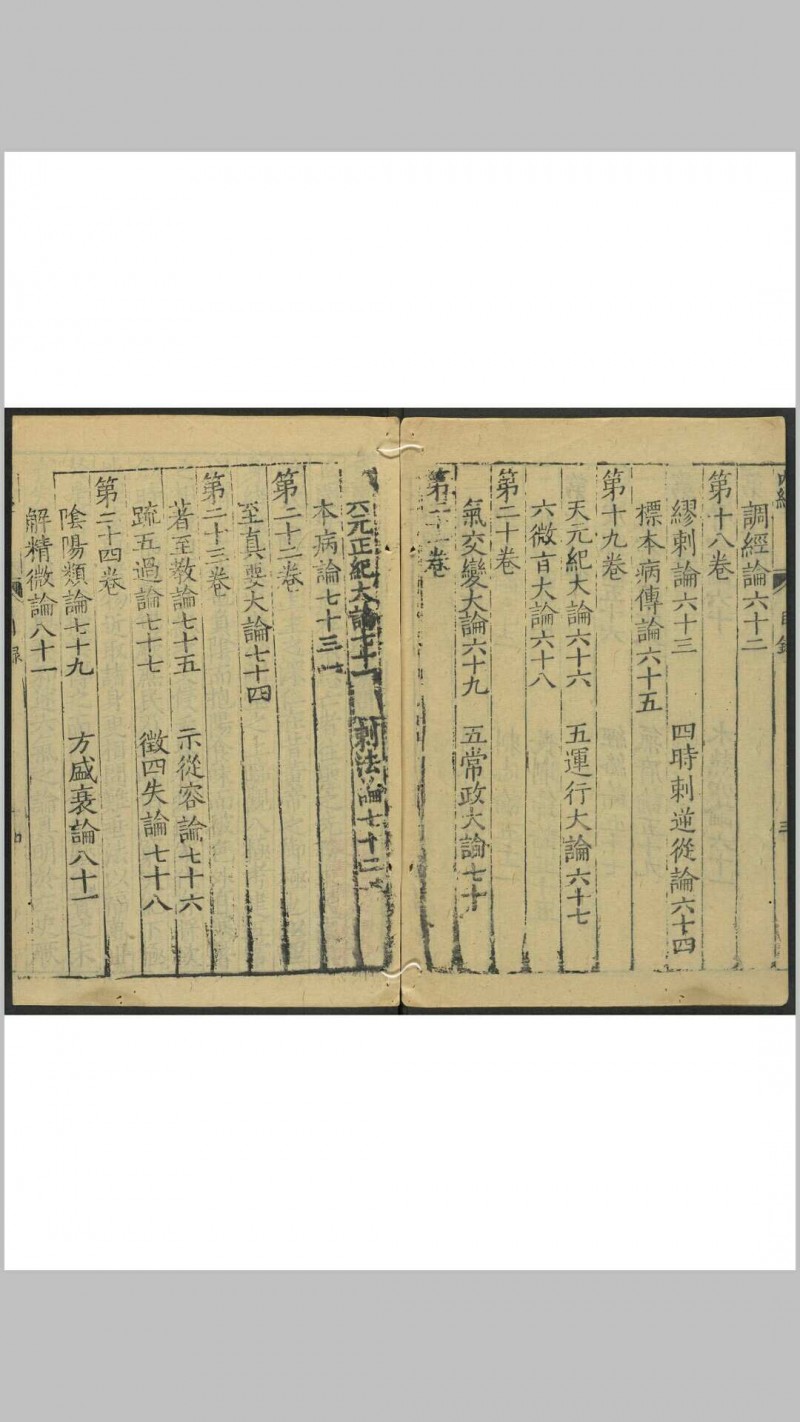 調經論六十二
第十八卷
繆刺論六十三　四時刺逆從論六十四
標本病傳論六十五
第十九卷
天元紀大論六十六　五運行大論六十七
六微旨大論六十八
第二十卷
氣交變大論六十九　五常政大論七十
第二十一卷
六元正紀大論七十一　刺法論七十二
本病論七十三
第二十二卷
至真要大論七十四
第二十三卷
著至教論七十五　示從容論七十六
疏五過論七十七　徵四失論七十八
第二十四卷
陰陽類論七十九　方盛衰論八十一
解精微論八十一